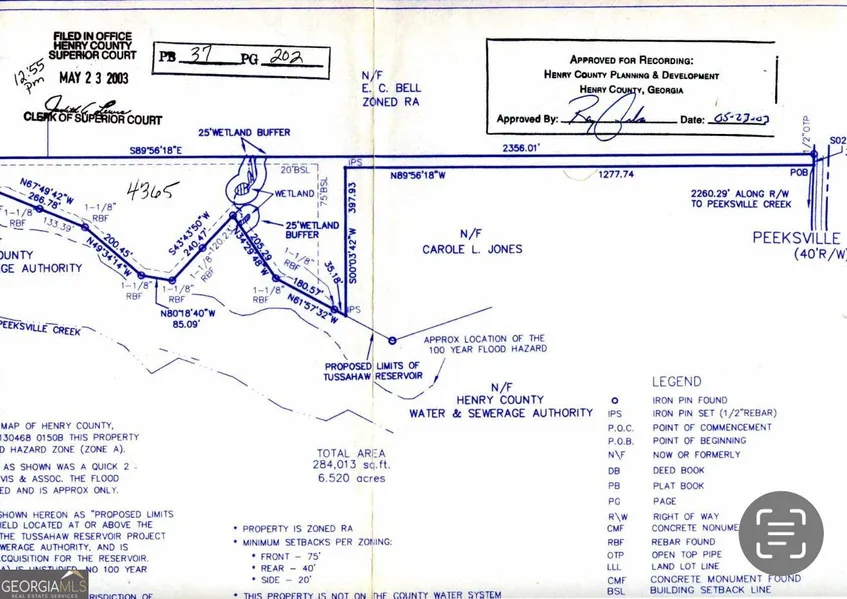 FILED IN OFFICE
HENRY COUNTY
SUPERIOR COURT
12:55 pm
MAY 23 2003
CLERK OF SUPERIOR COURT
PB 37 PG 202
N/F
E. C. BELL
ZONED RA
APPROVED FOR RECORDING:
HENRY COUNTY PLANNING & DEVELOPMENT
HENRY COUNTY, GEORGIA
Approved By: Date: 05-23-03
1/2"OTP
25'WETLAND BUFFER
S89°56'18"E
2356.01'
S02
IPS
N89°56'18"W
1277.74
POB
20'BSL
75'BSL
397.93
2260.29' ALONG R/W
TO PEEKSVILLE CREEK
N67°49'42"W
266.78'
133.39'
1-1/8"
RBF
4365
WETLAND
25'WETLAND
BUFFER
S43°43'50"W
240.47'
120.23'
1-1/8"
RBF
N/F
CAROLE L. JONES
PEEKSVILLE
(40'R/W)
OUNTY
GE AUTHORITY
1-1/8"
RBF
200.45'
N49°34'14"W
205.29
N34°29'48"W
1-1/8"
RBF
35.18'
S00°03'42"W
1-1/8"
RBF
1-1/8"
RBF
1-1/8"
RBF
180.57'
N61°57'32"W
IPS
N80°18'40"W
85.09'
PEEKSVILLE CREEK
APPROX LOCATION OF THE
100 YEAR FLOOD HAZARD
PROPOSED LIMITS OF
TUSSAHAW RESERVOIR
N/F
HENRY COUNTY
WATER & SEWERAGE AUTHORITY
LEGEND
O IRON PIN FOUND
IPS IRON PIN SET (1/2"REBAR)
P.O.C. POINT OF COMMENCEMENT
P.O.B. POINT OF BEGINNING
N\F NOW OR FORMERLY
DB DEED BOOK
PB PLAT BOOK
PG PAGE
R\W RIGHT OF WAY
CMF CONCRETE NONUME
RBF REBAR FOUND
OTP OPEN TOP PIPE
LLL LAND LOT LINE
CMF CONCRETE MONUMENT FOUND
BSL BUILDING SETBACK LINE
MAP OF HENRY COUNTY,
130468 0150B THIS PROPERTY
D HAZARD ZONE (ZONE A).
AS SHOWN WAS A QUICK 2 -
VIS & ASSOC. THE FLOOD
ED AND IS APPROX ONLY.
SHOWN HEREON AS "PROPOSED LIMITS
IELD LOCATED AT OR ABOVE THE
THE TUSSAHAW RESERVOIR PROJECT
WERAGE AUTHORITY, AND IS
CQUISITION FOR THE RESERVOIR.
A) IS UNSTUDIED, NO 100 YEAR
RISDICTION OF
TOTAL AREA
284,013 sq.ft.
6.520 acres
* PROPERTY IS ZONED RA
* MINIMUM SETBACKS PER ZONING:
* FRONT - 75'
* REAR - 40'
* SIDE - 20'
* THIS PROPERTY IS NOT ON THE COUNTY WATER SYSTEM
GEORGIAMLS
REAL ESTATE SERVICES